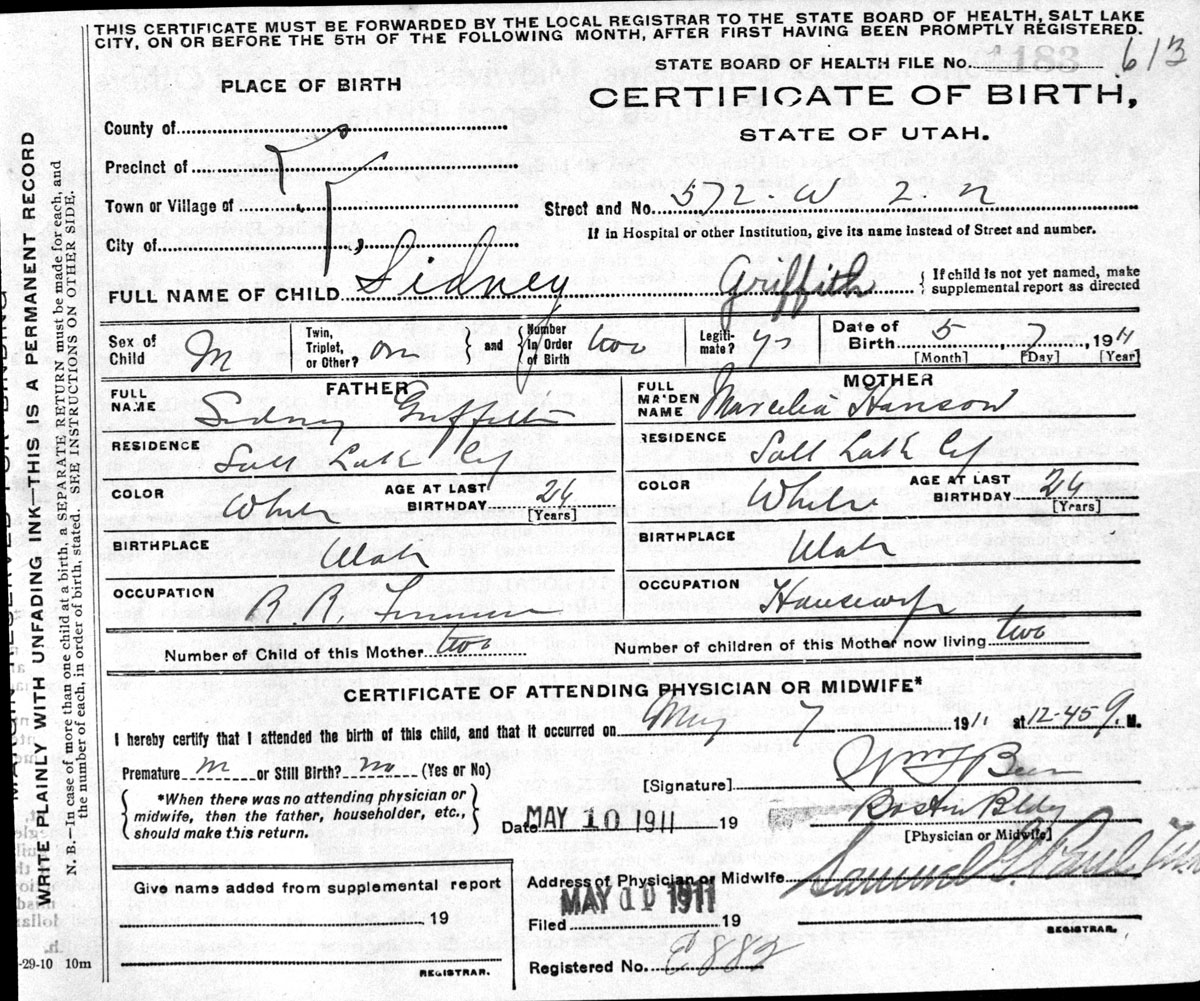 THIS CERTIFICATE MUST BE FORWARDED BY THE LOCAL REGISTRAR TO THE STATE BOARD OF HEALTH, SALT LAKE
CITY, ON OR BEFORE THE 5TH OF THE FOLLOWING MONTH, AFTER FIRST HAVING BEEN PROMPTLY REGISTERED.
STATE BOARD OF HEALTH FILE No. 1183 613
PLACE OF BIRTH
CERTIFICATE OF BIRTH,
STATE OF UTAH.
County of
Precinct of
Town or Village of
City of
Street and No. 572. W 2. N
If in Hospital or other Institution, give its name instead of Street and number.
FULL NAME OF CHILD Sidney Griffith { If child is not yet named, make
supplemental report as directed
Sex of Child M
Twin, Triplet, or Other? one } and { Number in Order of Birth two
Legiti-mate? ys
Date of Birth 5, 7, 1911
[Month] [Day] [Year]
FATHER
FULL NAME Sidney Griffith
RESIDENCE Salt Lake Cy
COLOR White
AGE AT LAST BIRTHDAY 24
[Years]
BIRTHPLACE Utah
OCCUPATION R. R.
MOTHER
FULL MAIDEN NAME Marcelia Hanson
RESIDENCE Salt Lake Cy
COLOR White
AGE AT LAST BIRTHDAY 24
[Years]
BIRTHPLACE Utah
OCCUPATION Housewife
Number of Child of this Mother two
Number of children of this Mother now living two
CERTIFICATE OF ATTENDING PHYSICIAN OR MIDWIFE*
I hereby certify that I attended the birth of this child, and that it occurred on May 7 1911 at 12-45 M.
Premature or Still Birth? no (Yes or No)
{ *When there was no attending physician or
midwife, then the father, householder, etc.,
should make this return. }
[Signature] Wm F Beer
Date MAY 10 1911 19
Boston Bldg
[Physician or Midwife]
Address of Physician or Midwife
Samuel G Paul
MAY 10 1911
Filed 19
REGISTRAR.
Registered No. E882
Give name added from supplemental report
, 19
REGISTRAR.
WRITE PLAINLY WITH UNFADING INK—THIS IS A PERMANENT RECORD
N. B.—In case of more than one child at a birth, a SEPARATE RETURN must be made for each, and
the number of each, in order of birth, stated. SEE INSTRUCTIONS ON OTHER SIDE.
-29-10 10m